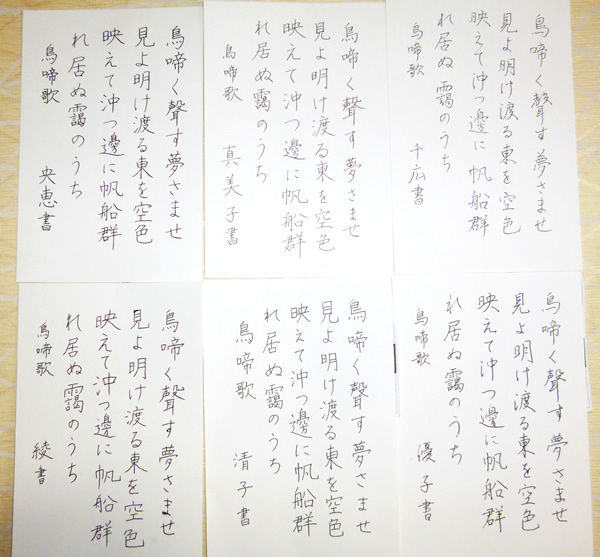 鳥啼く聲す夢さませ
見よ明け渡る東を空色
映えて沖つ邊に帆船群
れ居ぬ靄のうち
鳥啼歌 千広書
鳥啼く聲す夢さませ
見よ明け渡る東を空色
映えて沖つ邊に帆船群
れ居ぬ靄のうち
鳥啼歌 真美子書
鳥啼く聲す夢さませ
見よ明け渡る東を空色
映えて沖つ邊に帆船群
れ居ぬ靄のうち
鳥啼歌 央恵書
鳥啼く聲す夢さませ
見よ明け渡る東を空色
映えて沖つ邊に帆船群
れ居ぬ靄のうち
鳥啼歌 優子書
鳥啼く聲す夢さませ
見よ明け渡る東を空色
映えて沖つ邊に帆船群
れ居ぬ靄のうち
鳥啼歌 清子書
鳥啼く聲す夢さませ
見よ明け渡る東を空色
映えて沖つ邊に帆船群
れ居ぬ靄のうち
鳥啼歌 綾書